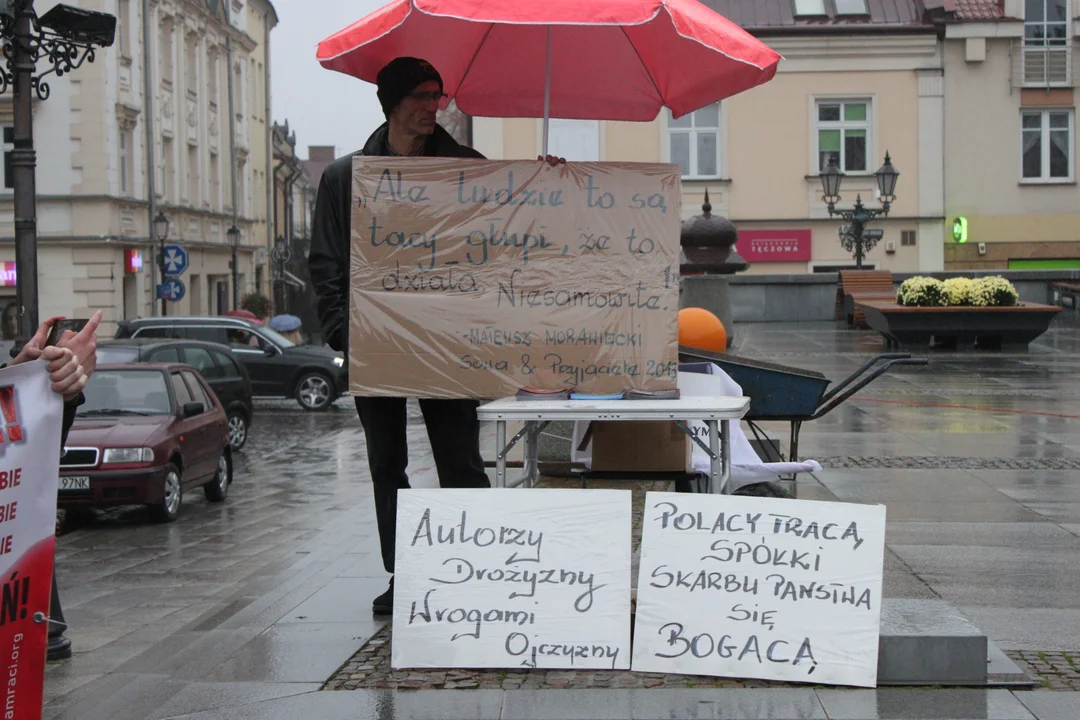 „Ale ludzie to są
tacy głupi, że to
działa Niesamowite!"
- MATEUSZ MORAWIECKI
Sowa & Przyjaciele 2013
Autorzy
Drożyzny
Wrogami
Ojczyzny
POLACY TRACĄ,
SPÓŁKI
SKARBU PAŃSTWA
SIĘ
BOGACĄ
TĘCZOWA
!
BIE
BIE
IE
Ń!
amraci.org
NK
YM